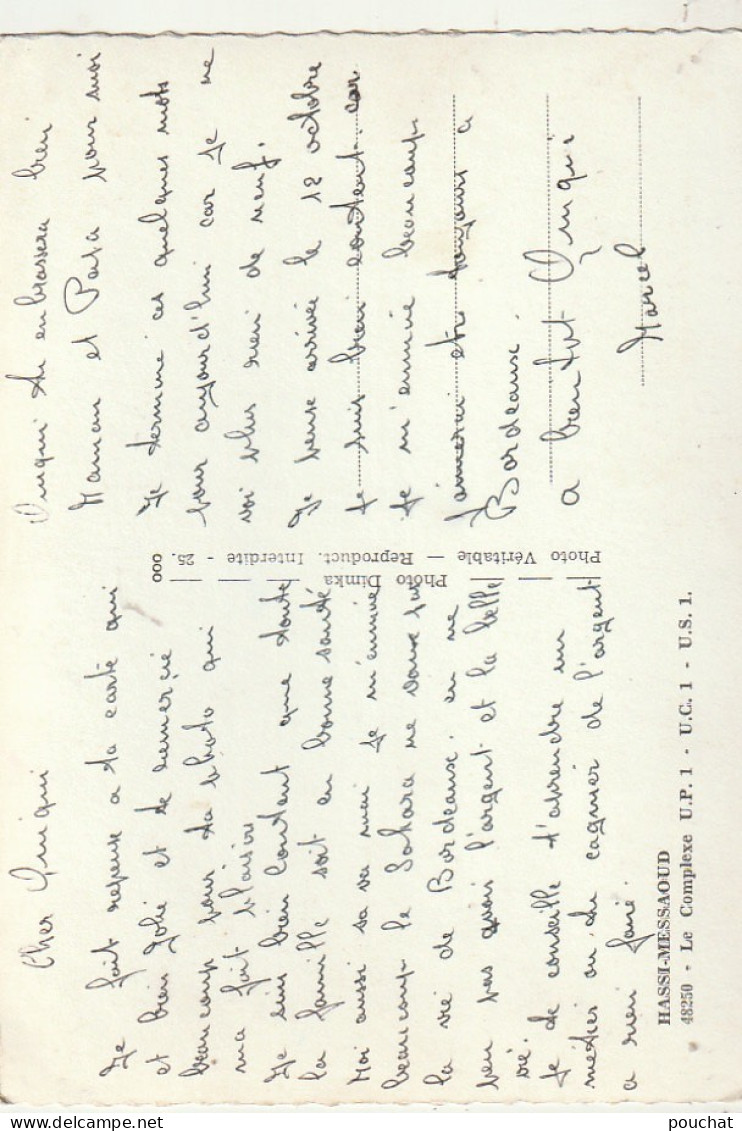 Cher Quiqui
Je fait repense a ta carte qui
et bien Jolie et te remercie
beaucoup pour ta photo qui
ma fait plaisir
Je suis bien content que toute
la famille soit en bonne santé
Moi aussi sa va mai je m'ennuie
beaucoup le Sahara ne vaux pas
la vie de Bordeause. on ne
peu pas avoir l'argent et la belle
vie.
Je te conseille d'aprendre un
métier ou tu cagnier de l'argent
a rien faire.
HASSI-MESSAOUD
48250 - Le Complexe U.P. 1 - U.C. 1 - U.S. 1.
Photo Dimka
Photo Véritable — Reproduct. Interdite - 25.
Quiqui tu enbrassera bien
Maman et Papa pour moi
Je termine ces quelques mots
pour aujourd'hui car je ne
voi plus rien de neuf.
Je pense arrivée le 12 octobre
je suis bien content car
je m'ennuie beaucoup
J'aimerai etre toujours a
Bordeause.
a bientot Quiqui
Marcel
pouchat